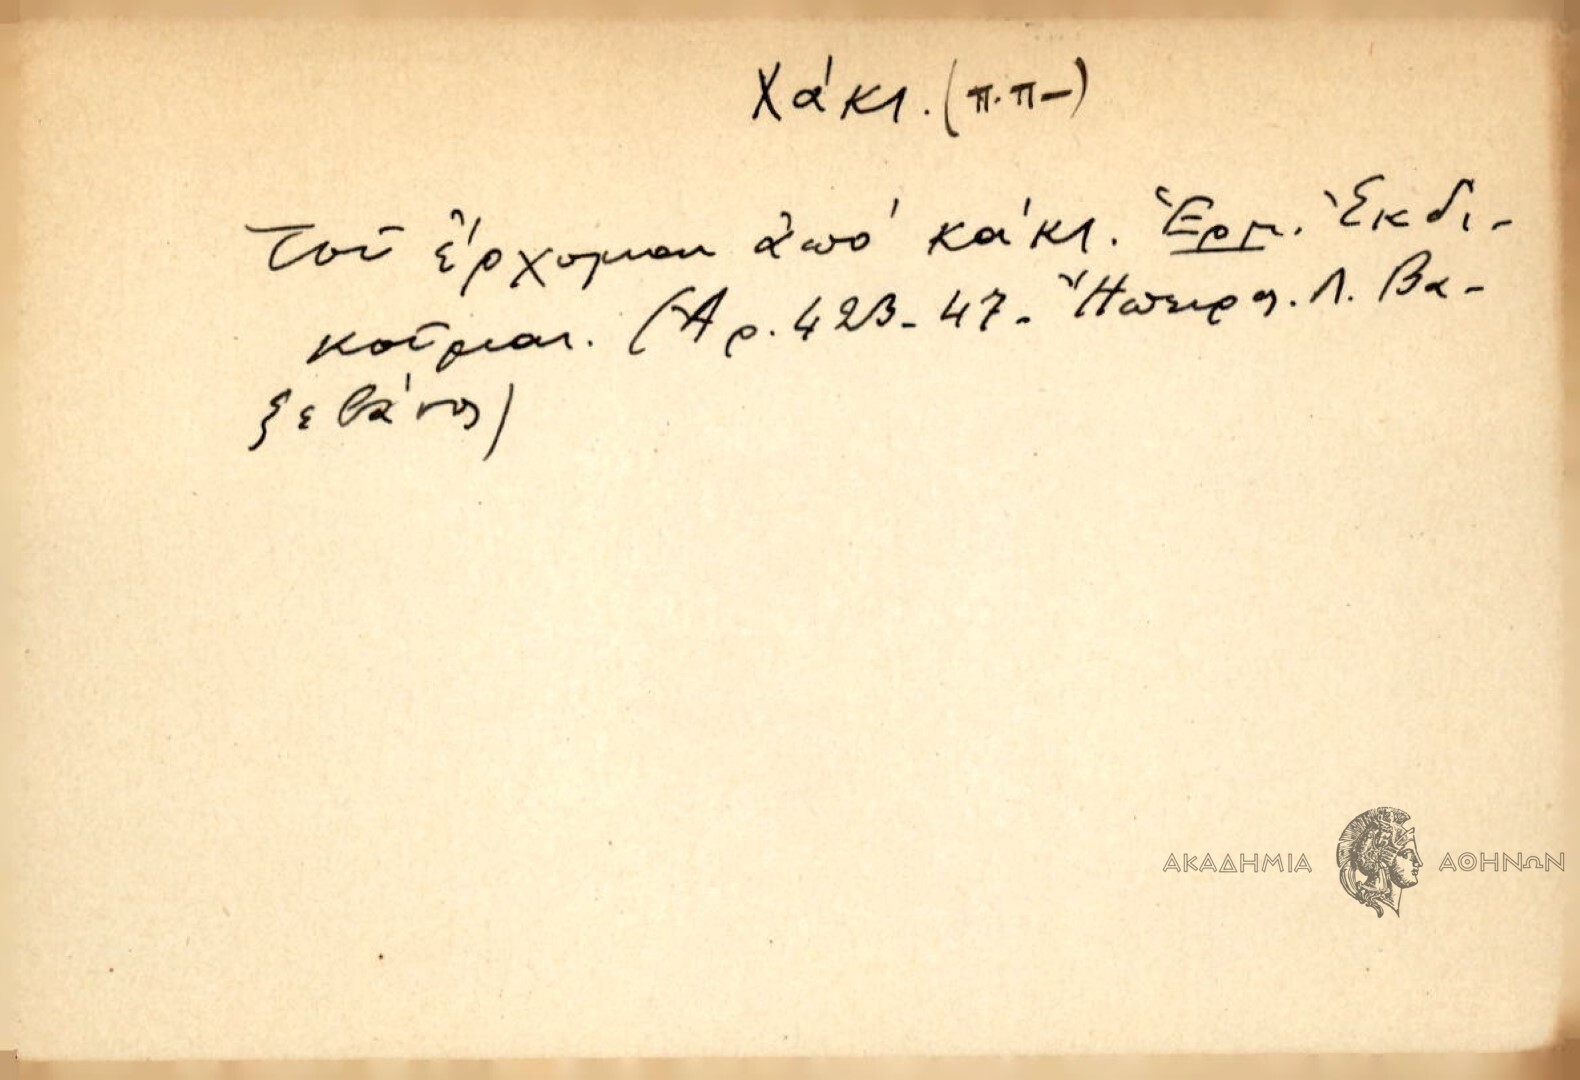 Χάκι. (π.π-)
Τοῦ ἔρχομαι ἀπό κάκι. Ἑρμ. Ἐκδι-
κοῦμαι. (Ἀρ. 423-47. Ἤπειρος. Λ. Βα-
ξεβάνος)
ΑΚΑΔΗΜΙΑ ΑΘΗΝΩΝ